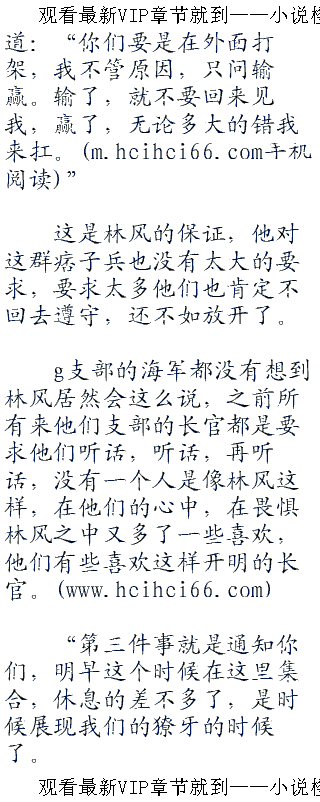 观看最新VIP章节就到——小说检
道：“你们要是在外面打
架，我不管原因，只问输
赢。输了，就不要回来见
我，赢了，无论多大的错我
来扛。(m.hcihci66.com手机
阅读)”
这是林风的保证，他对
这群痞子兵也没有太大的要
求，要求太多他们也肯定不
回去遵守，还不如放开了。
g支部的海军都没有想到
林风居然会这么说，之前所
有来他们支部的长官都是要
求他们听话，听话，再听
话，没有一个人是像林风这
样，在他们的心中，在畏惧
林风之中又多了一些喜欢，
他们有些喜欢这样开明的长
官。(www.hcihci66.com)
“第三件事就是通知你
们，明早这个时候在这里集
合，休息的差不多了，是时
候展现我们的獠牙的时候
了。
观看最新VIP章节就到——小说